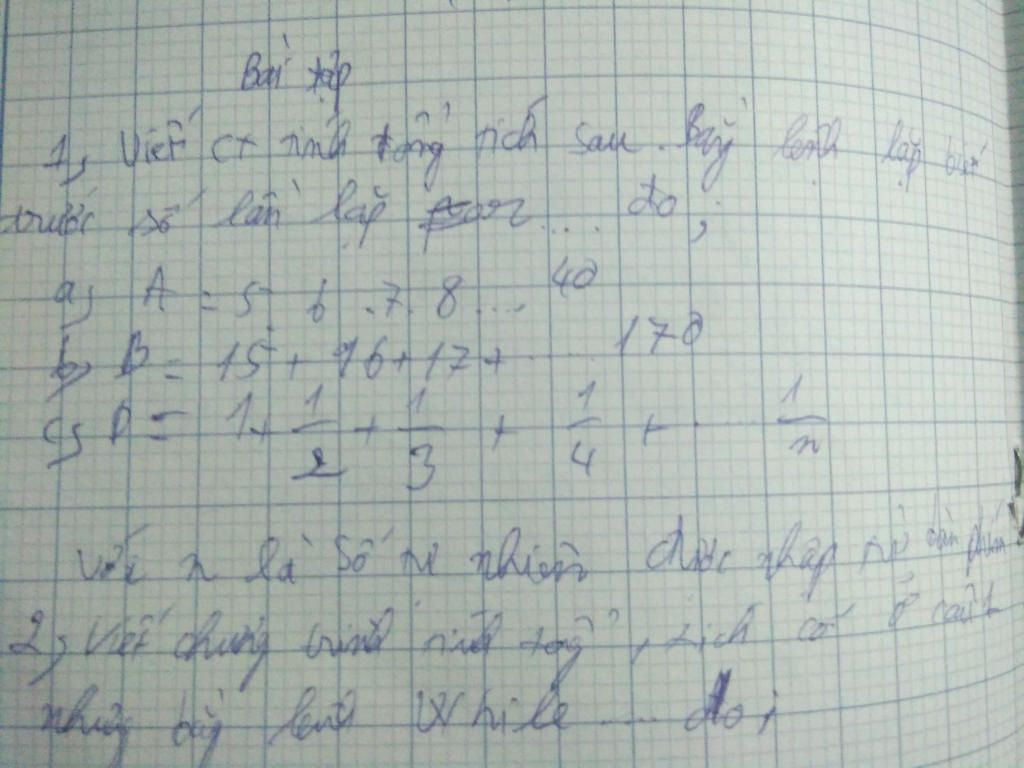 Bài tập
1, Viết CT tính tổng tích sau. Bằng lệnh lặp biết
trước số lần lặp for .... do;
a, A = 5 . 6 . 7 . 8 .... 40
b, B = 15 + 16 + 17 + ..... 170
c, D = 1 + 1/2 + 1/3 + 1/4 + ..... 1/n
với n là số tự nhiên được nhập từ bàn phím
2, Viết chương trình tính tổng, tích có ở câu 1
nhưng bằng lệnh While .... do;